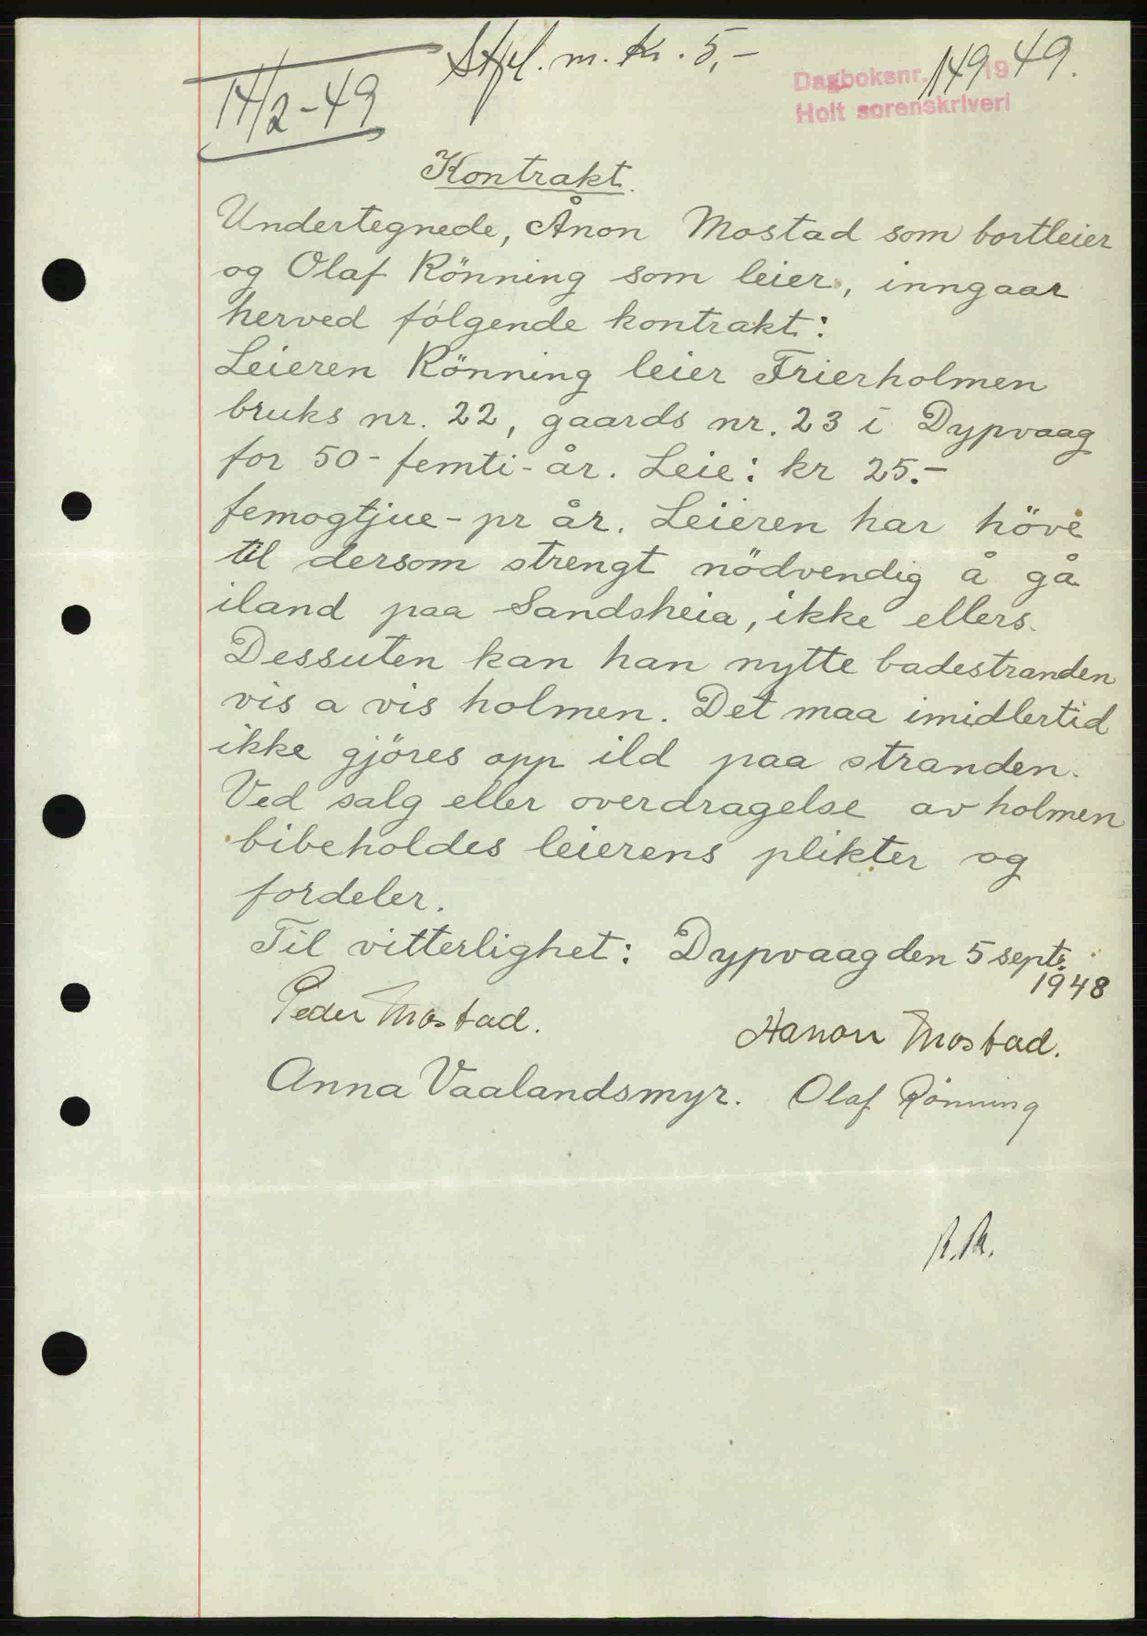 Stpl. m. Kr. 5,-
14/2-49
Dagboksnr. 149 1949.
Holt sorenskriveri
Kontrakt.
Undertegnede, Ånon Mostad som bortleier
og Olaf Rönning som leier, inngaar
herved følgende kontrakt:
Leieren Rönning leier Frierholmen
bruks nr. 22, gaards nr. 23 i Dypvaag
for 50 - femti - år. Leie: kr 25.-
femogtjue - pr år. Leieren har höve
til dersom strengt nödvendig å gå
iland paa Sandsheia, ikke ellers.
Dessuten kan han nytte badestranden
vis a vis holmen. Det maa imidlertid
ikke gjöres opp ild paa stranden.
Ved salg eller overdragelse av holmen
bibeholdes leierens plikter og
fordeler.
Til vitterlighet: Dypvaag den 5 septr.
1948
Peder Mostad.
Hanon Mostad.
Anna Vaalandsmyr. Olaf Rönning